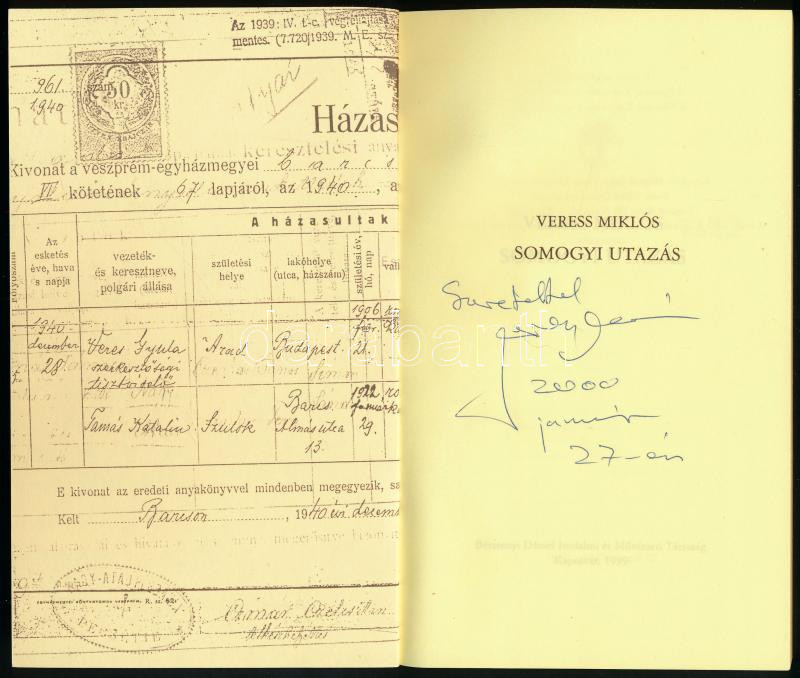 Az 1939: IV. t.-c. végrehajtása
mentes. (7.720/1939. M. E. sz
961
1940
szám
50
kr.
1
Házas
Kivonat a veszprém-egyházmegyei Barcs
VII kötetének 67 lapjáról, az 1940., a
A házasultak
folyószám
Az esketés éve, hava s napja
vezeték- és keresztneve, polgári állása
születési helye
lakóhelye (utca, házszám)
születési év, hó, nap
vall
1940. december 28
Veres Gyula szerkesztőségi tisztviselő
Arad
Budapest
1906 febr. 21.
Tamás Katalin
Szulok
Barcs Almás utca 13.
1922 január 29.
E kivonat az eredeti anyakönyvvel mindenben megegyezik, sa
Kelt Barcson, 1940 évi decemb
VERESS MIKLÓS
SOMOGYI UTAZÁS
Szeretettel
2000
január
27-én
Berzsenyi Dániel Irodalmi és Művészeti Társaság
Kaposvár, 1999
darabanth